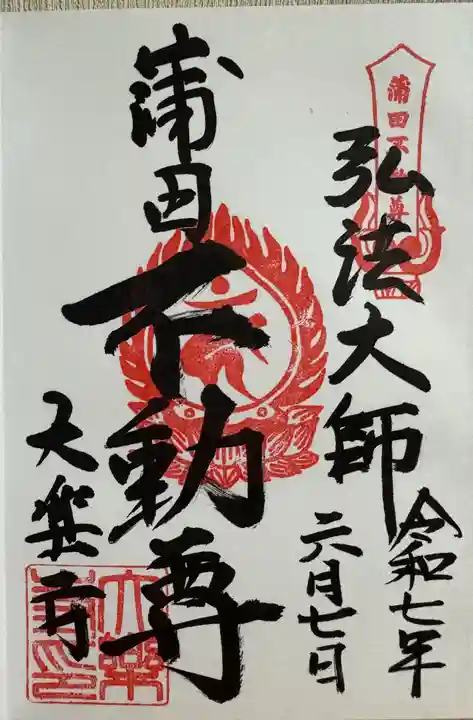 弘法大師
令和七年
六月七日
蒲田不動尊
大楽寺
蒲田不動尊